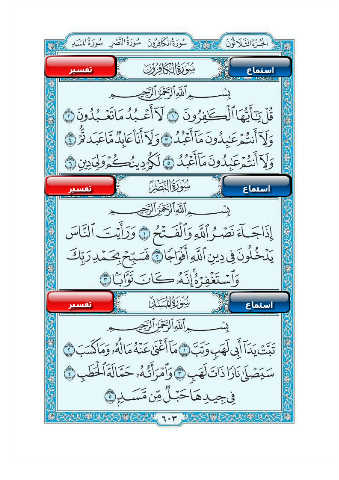 الجزء الثلاثون سورة الكافرون سورة النصر سورة المسد
استماع سورة الكافرون تفسير
بسم الله الرحمن الرحيم
قل يا أيها الكافرون ١ لا أعبد ما تعبدون ٢
ولا أنتم عابدون ما أعبد ٣ ولا أنا عابد ما عبدتم ٤
ولا أنتم عابدون ما أعبد ٥ لكم دينكم ولي دين ٦
استماع سورة النصر تفسير
بسم الله الرحمن الرحيم
إذا جاء نصر الله والفتح ١ ورأيت الناس
يدخلون في دين الله أفواجا ٢ فسبح بحمد ربك
واستغفره إنه كان توابا ٣
استماع سورة المسد تفسير
بسم الله الرحمن الرحيم
تبت يدا أبي لهب وتب ١ ما أغنى عنه ماله وما كسب ٢
سيصلى نارا ذات لهب ٣ وامرأته حمالة الحطب ٤
في جيدها حبل من مسد ٥
٦٠٣